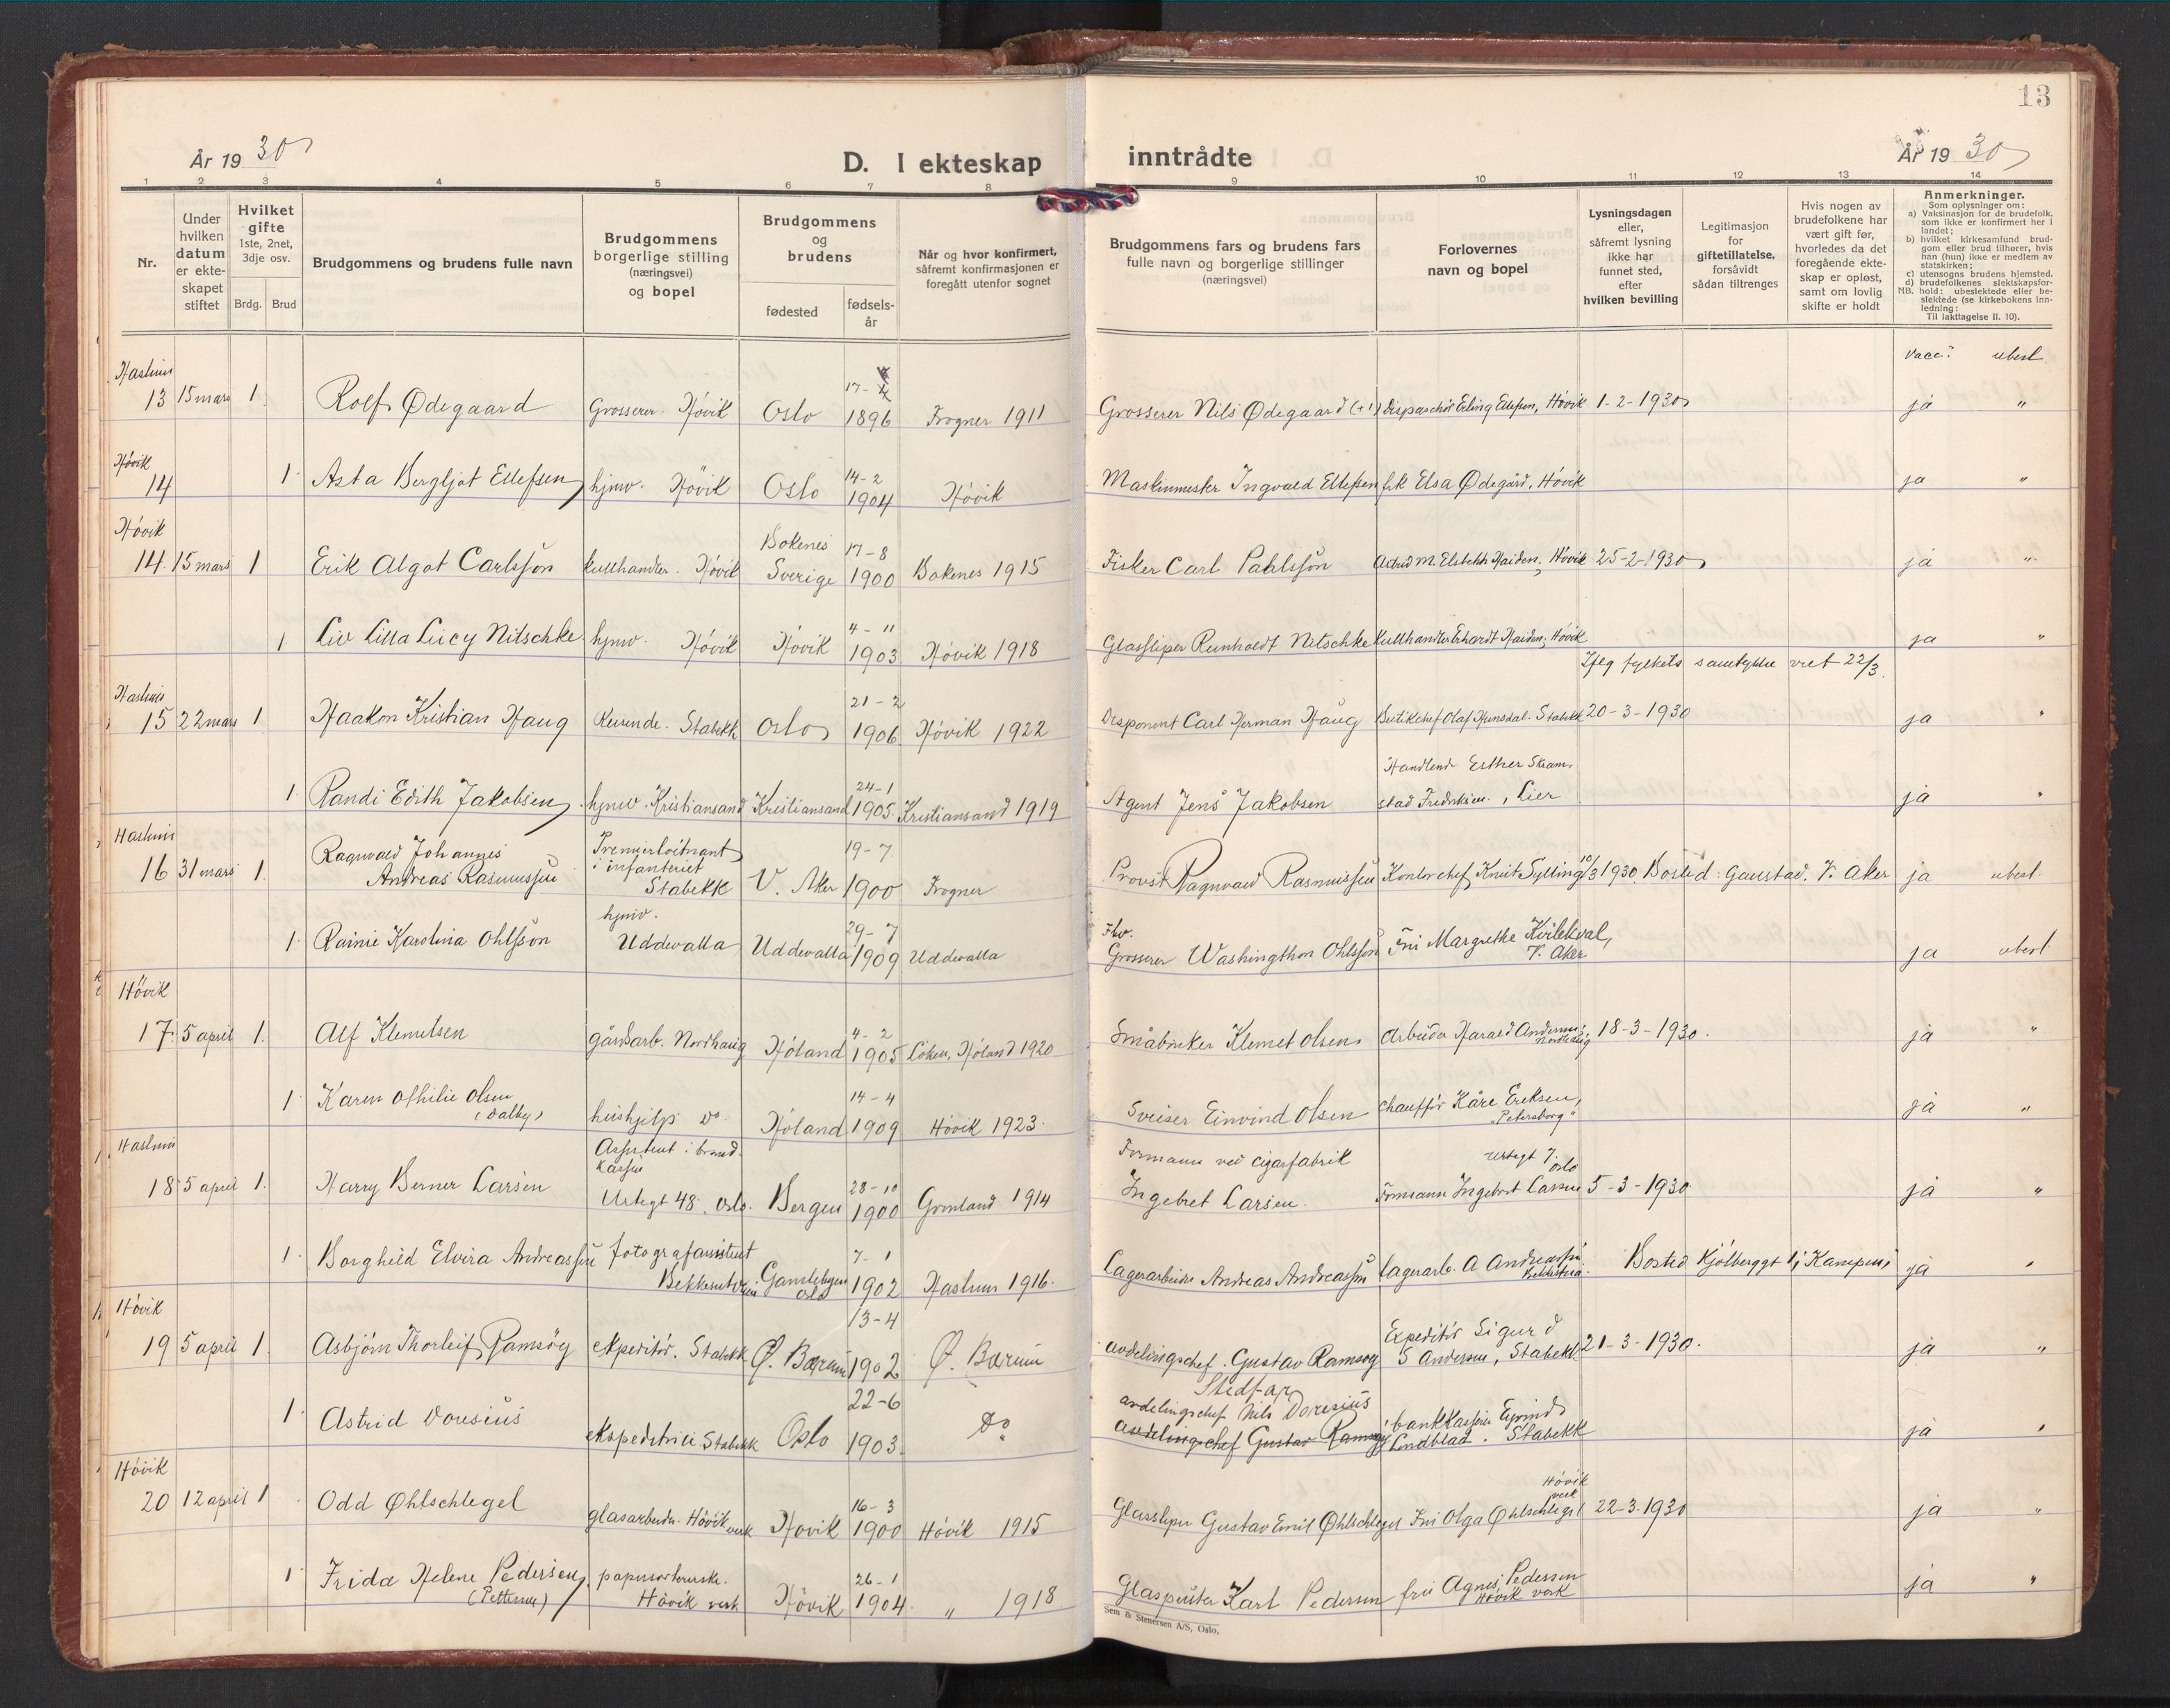 13
År 19 30
D. I ekteskap inntrådte
År 19 30
1 2 3 4 5 6 7 8 9 10 11 12 13 14
Nr.
Under hvilken datum er ekte-skapet stiftet
Hvilket gifte 1ste, 2net, 3dje osv.
Brdg. Brud
Brudgommens og brudens fulle navn
Brudgommens borgerlige stilling (næringsvei) og bopel
Brudgommens og brudens
fødested
fødsels-år
Når og hvor konfirmert, såfremt konfirmasjonen er foregått utenfor sognet
Brudgommens fars og brudens fars fulle navn og borgerlige stillinger (næringsvei)
Forlovernes navn og bopel
Lysningsdagen eller, såfremt lysning ikke har funnet sted, efter hvilken bevilling
Legitimasjon for giftetillatelse, forsåvidt sådan tiltrenges
Hvis nogen av brudefolkene har vært gift før, hvorledes da det foregående ekte-skap er opløst, samt om lovlig skifte er holdt
Anmerkninger.
Som oplysninger om:
a) Vaksinasjon for de brudefolk. som ikke er konfirmert her i landet;
b) hvilket kirkesamfund brud-gom eller brud tilhører, hvis han (hun) ikke er medlem av statskirken;
c) utensogns brudens hjemsted.
d) brudefolkenes slektskapsfor-hold: ubeslektede eller be-slektede (se kirkebokens inn-ledning:
NB.
Til iakttagelse II. 10).
vacc. ubesl.
Haslum
13 15 mars 1 Rolf Ødegaard Grosserer. Høvik Oslo 17- 1896 Frogner 1911 Grosserer Nils Ødegaard (+) Dispaschör Erling Ellefsen, Høvik 1-2-1930 ja "
Høvik
14 1 Asta Bergljot Ellefsen hjmv. Høvik Oslo 14-2 1904 Høvik Maskinmester Ingvald Ellefsen frk Elsa Ødegård, Høvik ja "
Høvik
14. 15 mars 1 Erik Algot Carlsson kullhandler. Høvik Bokenes Sverige 17-8 1900 Bokenes 1915 Fisker Carl Pahlsson Astrid M. Elsbeth Haiden, Høvik 25-2-1930 ja "
1 Liv Lilla Lucy Nitschke hjmv. Høvik Høvik 4-11 1903 Høvik 1918 Glassliper Reinholdt Nitschke Kullhandler Erhardt Haiden, Høvik ja "
Iflg fylkets samtykke viet 22/3.
Haslum
15 22 mars 1 Haakon Kristian Haug Stabekk Oslo 21-2 1906 Høvik 1922 Disponent Carl Herman Haug Butikchef Olaf Hunsdal. Stabekk 20-3-1930 ja "
1 Randi Edith Jakobsen hjmv. Kristiansand Kristiansand 24-1 1905. Kristiansand 1919 Agent Jens Jakobsen Handlende Esther Skram-stad Fredriksen, Lier ja "
Haslum
16 31 mars 1. Ragnvald Johannes Andreas Rasmussen Premierløitnant i infanteriet Stabekk V. Aker 19-7 1900 Frogner Provst Ragnvald Rasmussen Kontorchef Knut Sylling 10/3 1930. Bosted: Gaustad. V. Aker ja ubesl.
1. Rainie Karolina Ohlsson hjmv. Uddevalla Uddevalla 29-7 1909 Uddevalla Fhv. Grosserer Washingthon Ohlsson Fru Margrethe Kvilekval, V. Aker ja ubesl
Høvik
17. 5 april 1. Alf Klemetsen gårdsarb. Nordhaug Høland 4-2 1905 Løken, Høland 1920 Småbruker Klemet Olsen Arbeider Harald Andersen, Nordhaug 18-3-1930. ja "
1 Karen Othilie Olsen (Dalby) hushjelp do. Høland 14-4 1909 Høvik 1923. Sveiser Einvind Olsen Chauffør Kåre Eriksen, "Petersborg" ja "
Haslum
18 5 april 1. Harry Berner Larsen Assistent i brand-kassen Urtegt 48, Oslo. Bergen 28-10 1900 Grønland 1914 Formann ved cigarfabrik Ingebret Larsen. Formann Ingebret Larsen Urtegt 7. Oslo 5-3-1930 ja "
1. Borghild Elvira Andreassen fotografassistent Gamlebyen Oslo 7-1 1902 Haslum 1916. Lagerarbeider Andreas Andreassen lagerarb. A Andreassen Bosted Kjølberggt Kampen ja "
Høvik
19 5 april 1 Asbjørn Thorleif Ramsøg ekspeditør. Stabekk Ø. Bærum 13-4 1902 Ø. Bærum avdelingschef. Gustav Ramsøg Expeditør Sigurd S Andersen, Stabekk 21-3-1930. ja "
1. Astrid Doresius ekspeditrise Stabekk Oslo 22-6 1903. Do Stedfar avdelingschef Nils Doresius avdelingschef Gustav Ramsøg bankkasserer Eyvind Lindblad. Stabekk ja "
Høvik
20 12 april 1 Odd Øhlschlegel glasarbeider. Høvik verk Høvik 16-3 1900 Høvik 1915 Glassliper Gustav Emil Øhlschlegel Fru Olga Øhlschlegel Høvik verk 22-3-1930 ja "
1 Frida Helene Pedersen (Pettersen) papirsorterske. Høvik verk Høvik 26-1 1904. " 1918 Glaspuster Karl Pedersen fru Agnes Pedersen Høvik verk ja "
Sem & Stenersen A/S, Oslo,